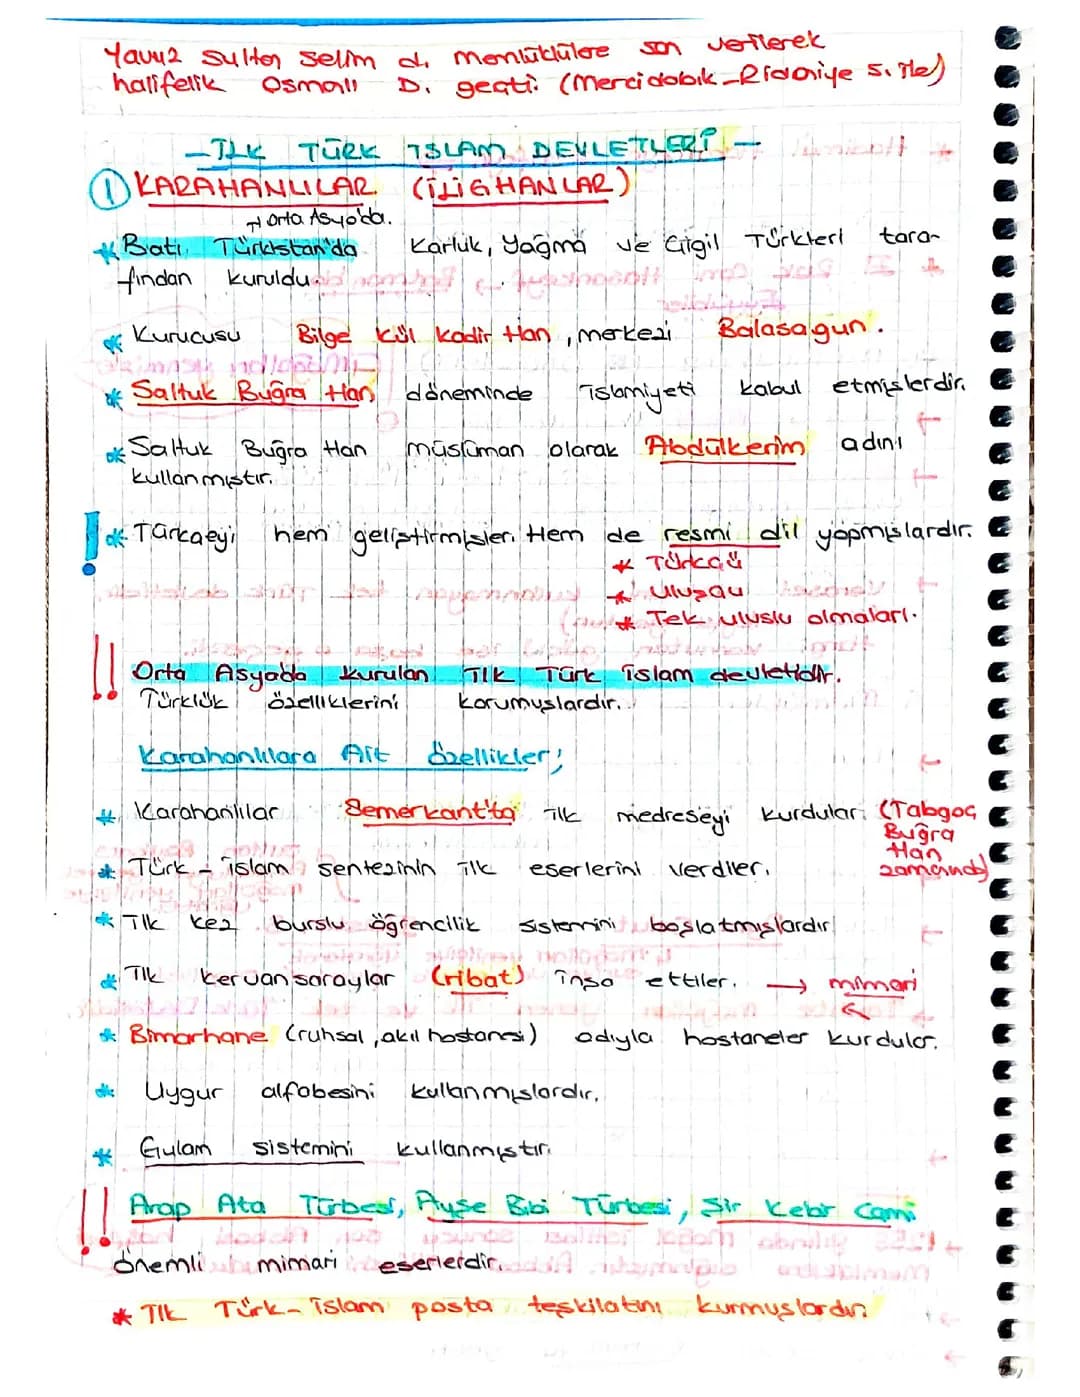 Yavuz Sultan Selim d. memlüklülere son verilerek
halifelik Osmalı D. geçti. (Mercidabık-Ridaniye s. ile)
- İLK TÜRK İSLAM DEVLETLERİ -
① KARAHANLILAR (İLİGHANLAR)
→ Orta Asya'da.
* Batı Türkistan'da Karluk, Yağma ve Çigil Türkleri tara-
fından kuruldu.
* Kurucusu Bilge Kül Kadir Han, merkezi Balasagun.
* Saltuk Buğra Han döneminde islamiyeti kabul etmişlerdir.
* Saltuk Buğra Han müslüman olarak Abdülkerim adını
kullanmıştır.
! * Türkçeyi hem geliştirmişler. Hem de resmi dil yapmışlardır.
* Türkçü
* Ulusçu
* Tek uluslu olmaları.
!! Orta Asyada kurulan İlk Türk islam devletidir.
Türklük özelliklerini korumuşlardır.
Karahanlılara Ait özellikler;
* Karahanlılar Semerkant'ta ilk medreseyi kurdular. (Tabgaç
Buğra
Han
zamanında)
* Türk - islam sentezinin ilk eserlerini verdiler.
* İlk kez burslu öğrencilik sistemini başlatmışlardır
* İlk kervansaraylar (ribat) inşa ettiler. → mimari
* Bimarhane (ruhsal, akıl hastanesi) adıyla hastaneler kurdular.
* Uygur alfabesini kullanmışlardır.
* Gulam sistemini kullanmıştır.
!! Arap Ata Türbesi, Ayşe Bibi Türbesi, Şir Kebir Cami
önemli mimari eserlerdir.
* İlk Türk-İslam posta teşkilatını kurmuşlardır.